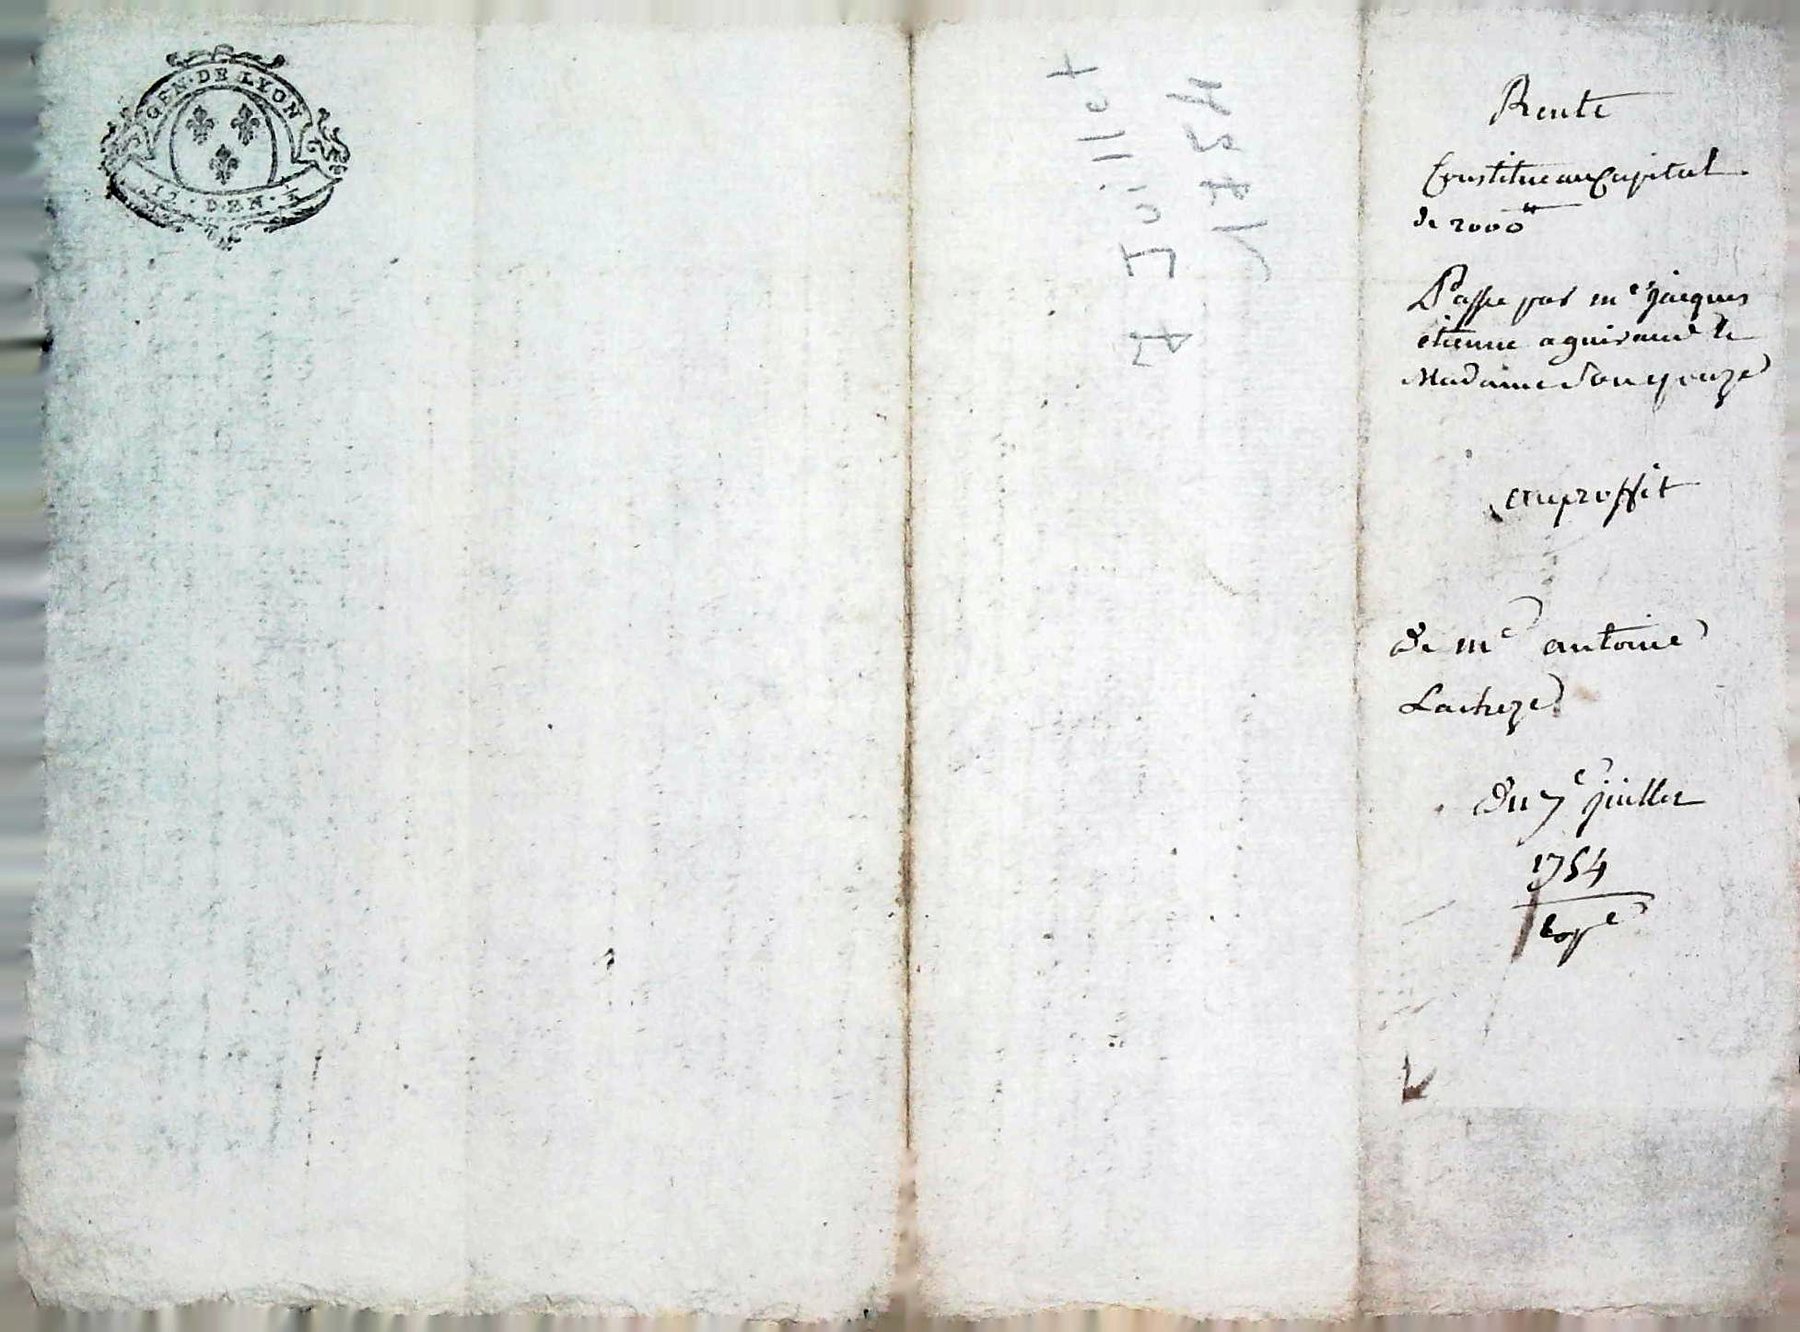 GEN · DE LYON
12 · DEN · ½
7 Juillet
1754
Rente
Constitue au Capital
de 2000ᵗᵗ
Passe par mᵉ jacques
étienne aguiraud &
Madame
au proffit
De mᵉ antoine
Lacheze
Du 7ᵉ juillet
1754